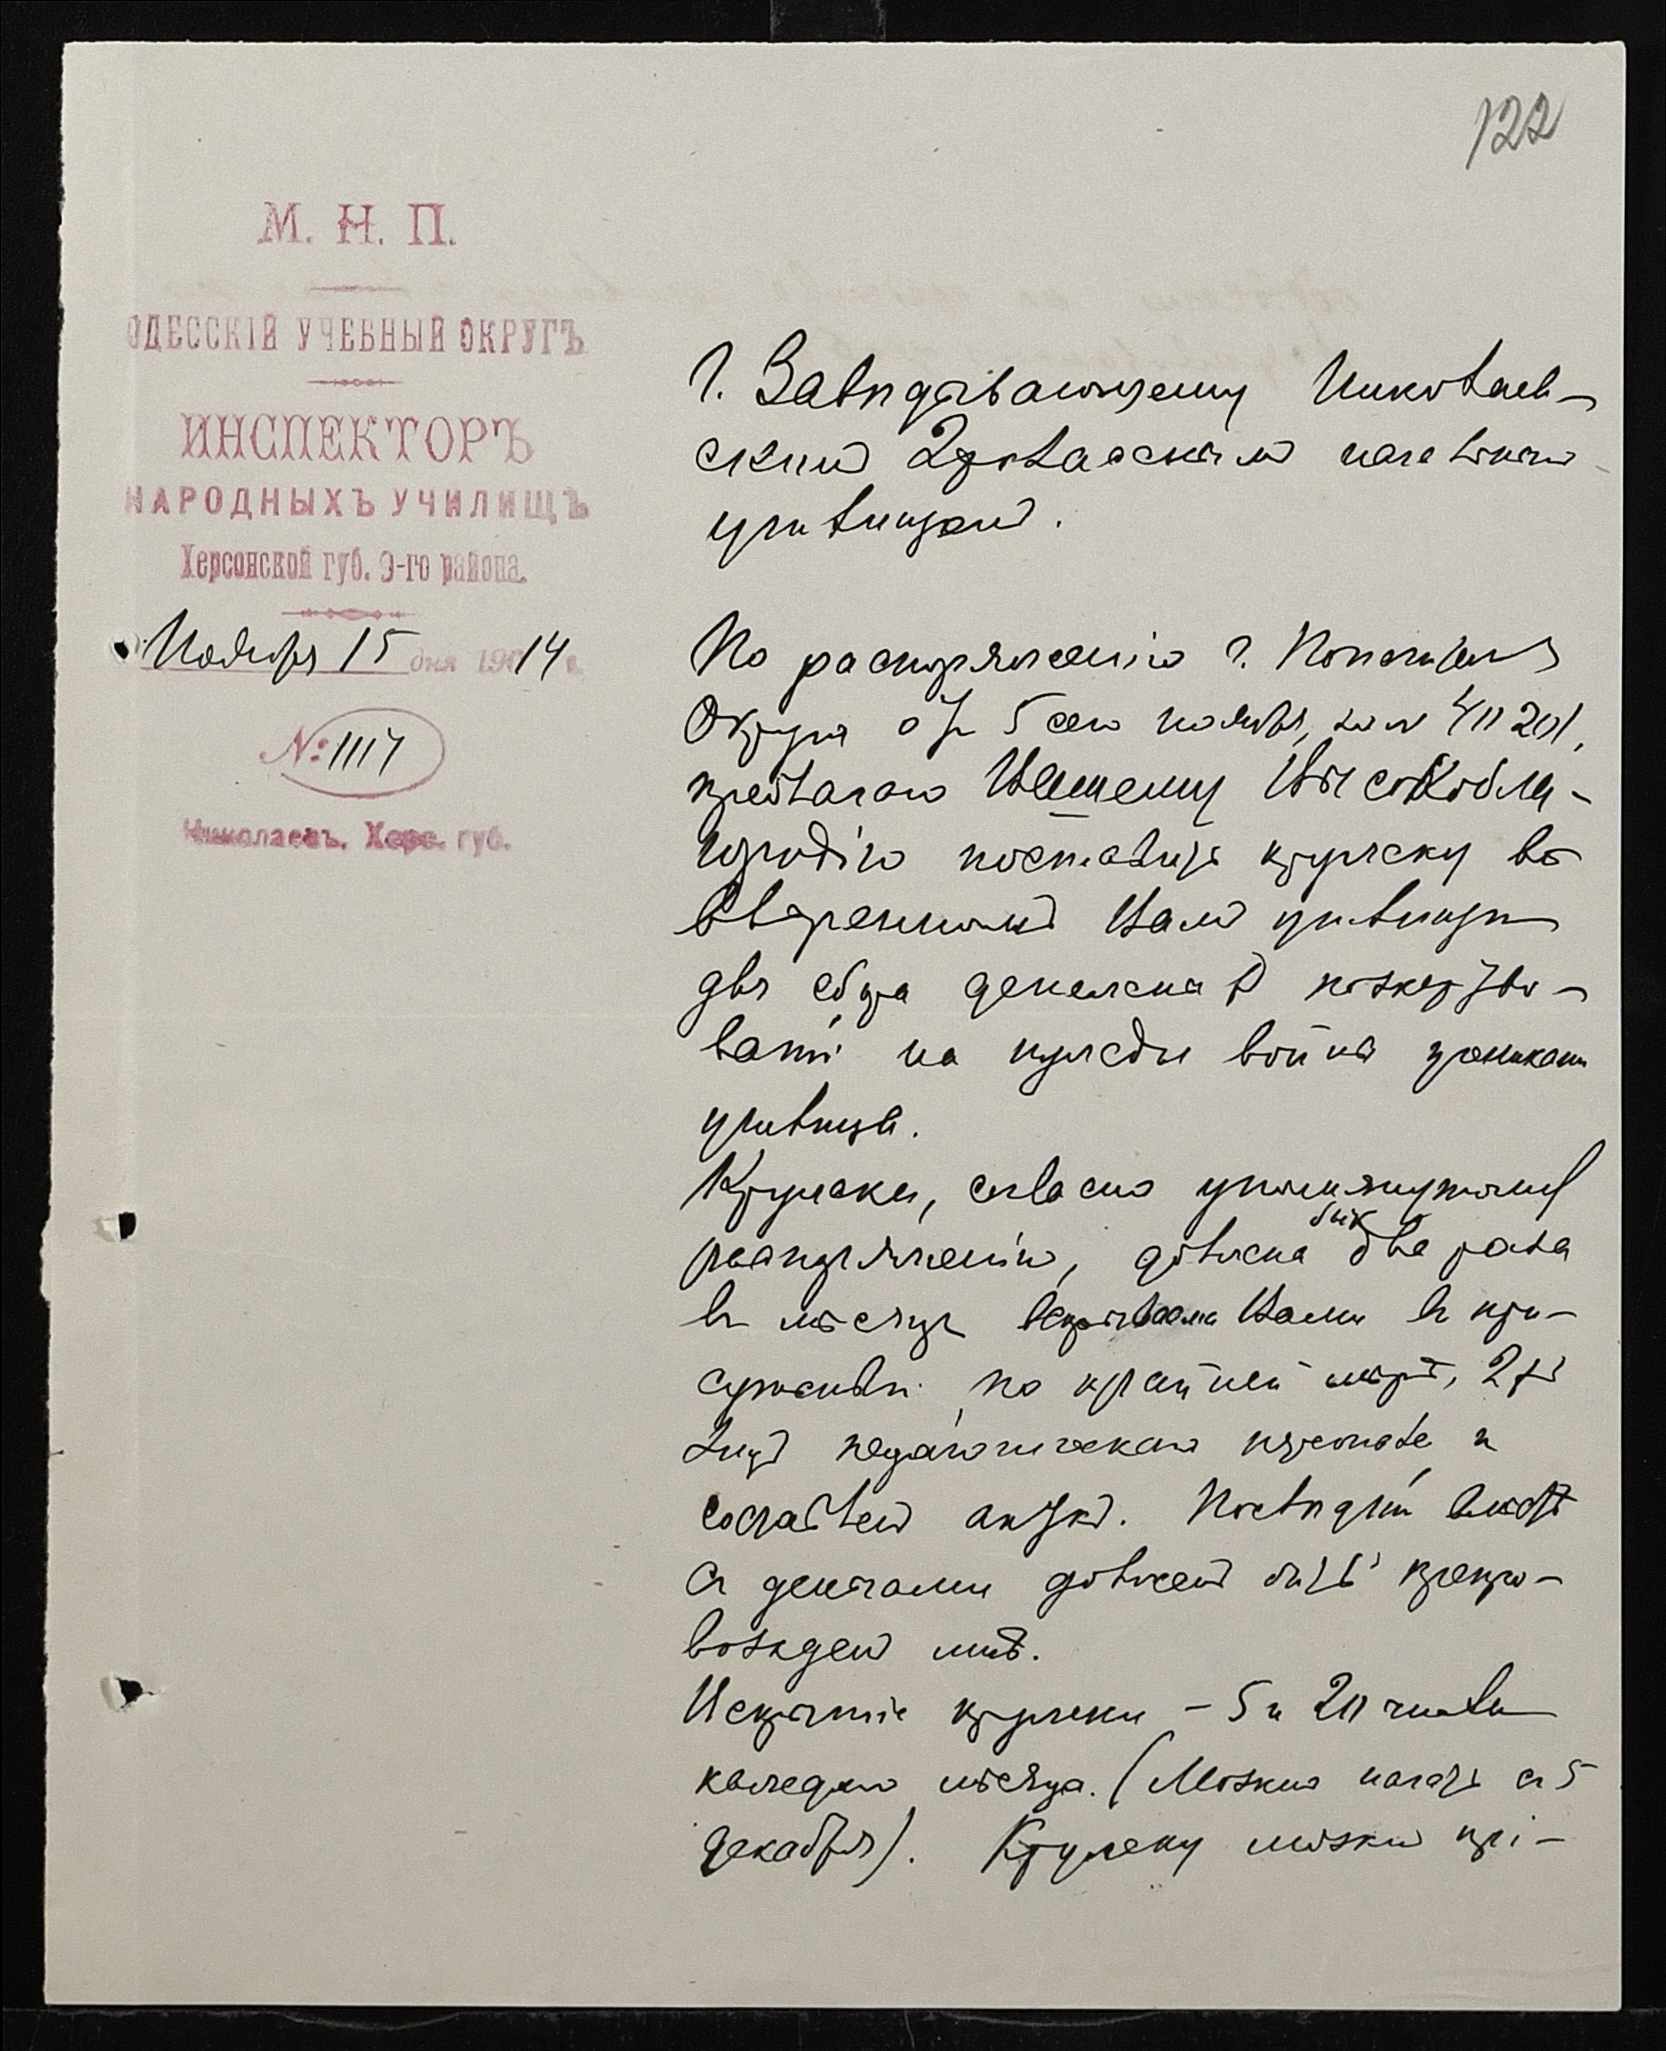 122
М. Н. П.
ОДЕССКІЙ УЧЕБНЫЙ ОКРУГЪ
ИНСПЕКТОРЪ
НАРОДНЫХЪ УЧИЛИЩЪ
Херсонской губ. 9-го района.
Ноября 15 дня 1914 г.
№ 1117
Николаевъ. Херс. губ.
Г. Завѣдывающему Николаев-
скимъ начальнымъ
училищемъ.
По распоряженію г. Попечителя
Округа отъ 5 сего ноября, за №
предлагаю Вашему Высокобла-
городію поставить кружку во
ввѣренномъ Вамъ училищѣ
для сбора денежныхъ пожертво-
ваній на нужды войны учениками
училища.
Кружка, согласно упомянутому
распоряженію, должна быть два раза
въ мѣсяцъ вскрываема Вами въ при-
сутствіи, по крайней мѣрѣ, 2-хъ
лицъ педагогическаго персонала и
составленъ актъ. Послѣдній вмѣстѣ
съ деньгами долженъ быть препро-
вожденъ мнѣ.
Вскрытіе кружки – 5 и 20 числа
каждаго мѣсяца. (Можно начать съ 5
декабря). Кружку можно прі-